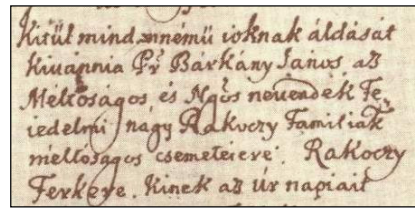 Kitül mindennémü ioknak áldását
kivánnia Pr Barkány János az
Méltoságos, és Ngos nevendék Fe,
iedelmi nagy Rakoczy Familiák
méltosagos csemeteiere. Rakoczy
Ferkere. Kinek az Úr napiait